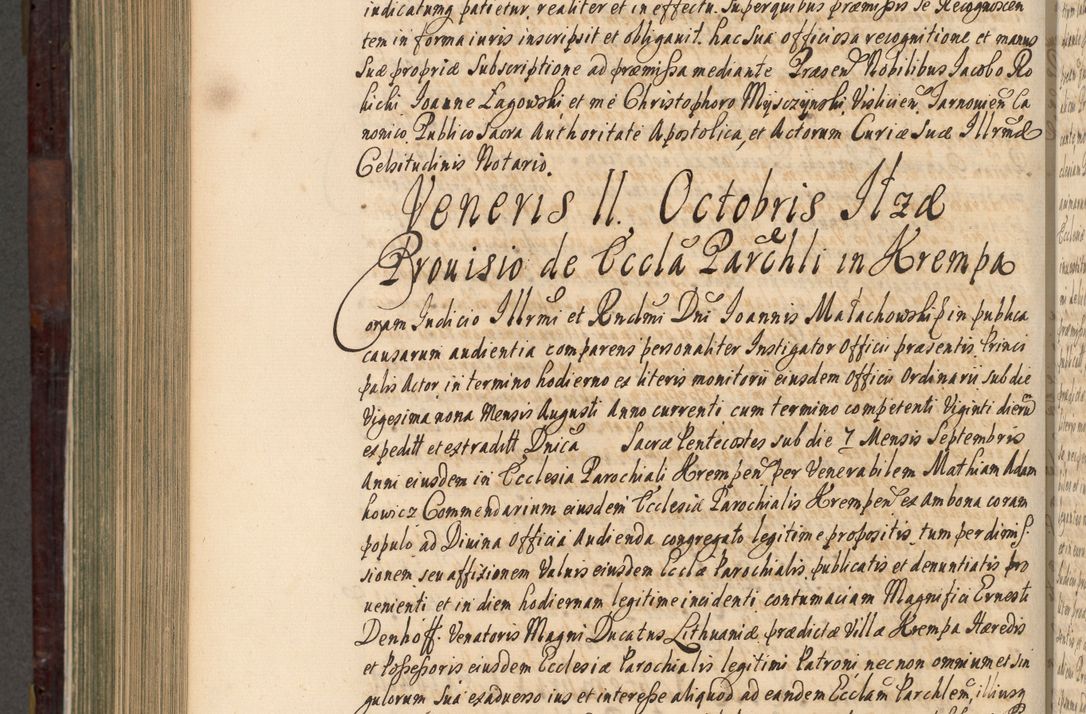 indicatung patietur realiter et in effectu. Super quibus præmissis se Recognoscen
tem in forma iuris inscripsit et obligauit. hac sua officiosa recognitione et manus
suæ propriæ subscriptione ad præmissa mediante Præsen Nobilibus Jacobo Ro
kicki Joanne Łagowski et me Christophoro Mysczynski Vislicien Tarnouien Ca
nonico Publico Sacra Authoritate Apostolica, et Actorum Curiæ Suæ Illrmæ
Celsitudinis Notario.
Veneris II. Octobris Itzæ
Prouisio de Eccla Parchli in Krempa
Coram Judicio Illrmi et Rndmi Dni Joannis Małachowski in publica
causarum audientia comparens personaliter Instigator Officii præsentis Princi
palis Actor, in termino hodierno ex literis monitorii eiusdem Officii Ordinarii sub die
Vigesima nona Mensis Augusti Anno currenti cum termino competenti Viginti dieru
expeditt et extraditt Dnica Sacræ Pentecostes sub die 7 Mensis Septembris
Anni eiusdem in Ecclesia Parochiali Krempen per Venerabilem Mathiam Adam
kowicz Commendarium eiusdem Ecclesiæ Parochialis Krempen ex ambona coram
populo ad Diuina Officia Audienda congregato legitime propositis, tum per dimis
sionem seu affixionem Valuis eiusdem Ecclæ Parochialis publicatis et denuntiatis pro
uenienti et in diem hodiernam legitime incidenti contumaciam Magnifici Ernesti
Denhoff. Venatoris Magni Ducatus Lithuaniæ prædictæ Villæ Krempa Hæredis
et Possessoris eiusdem Ecclesiæ Parochialis legitimi Patroni nec non omnium et sin
gulorum sua ex aduerso ius et interesse aliquod ad eandem Ecclam Parchlem, illiusq